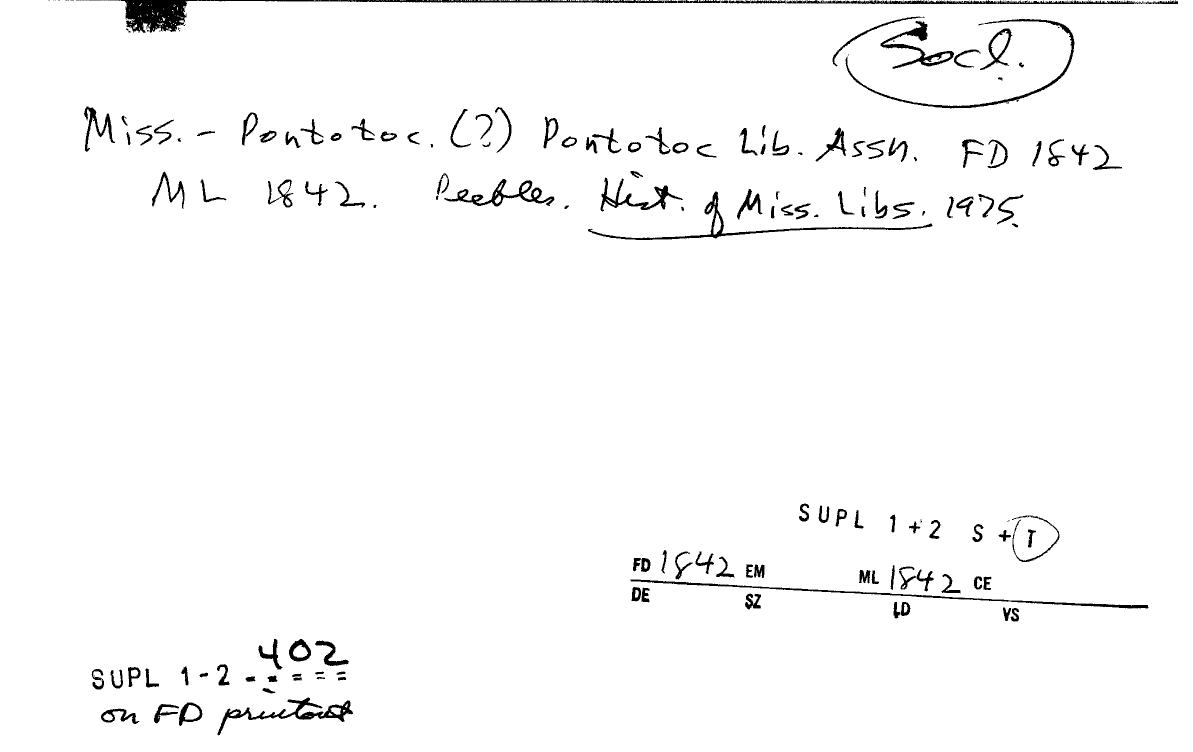 Socl.
Miss. - Pontotoc. (?) Pontotoc Lib. Assn. FD 1842
ML 1842. Peebles. Hist. of Miss. Libs. 1975.
SUPL 1+2 S + T
FD 1842 EM ML 1842 CE
DE SZ LD VS
402
SUPL 1-2 - - = = =
on FD printout